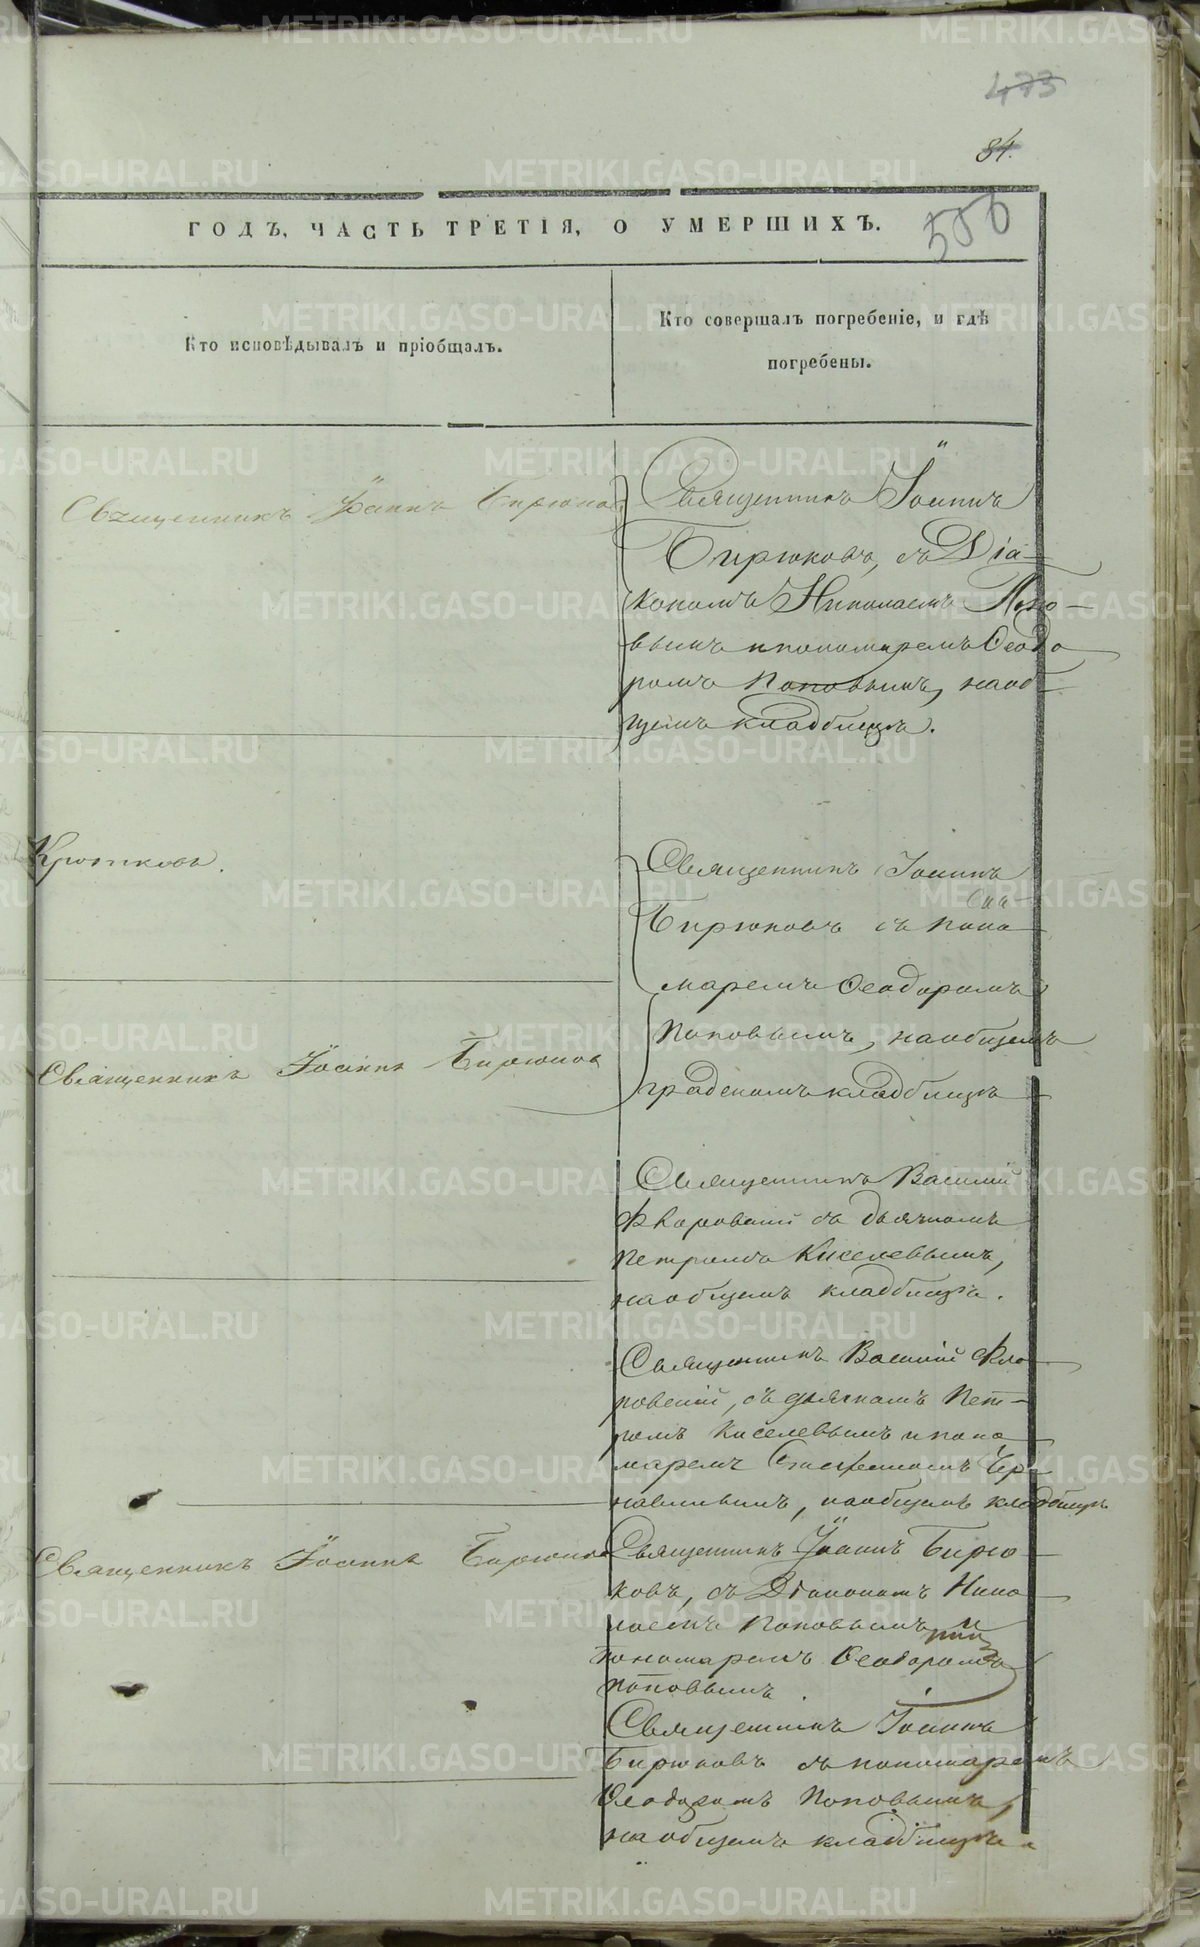 473
84.
556
ГОДЪ, ЧАСТЬ ТРЕТІЯ, О УМЕРШИХЪ.
Кто исповѣдывалъ и пріобщалъ.
Кто совершалъ погребеніе, и гдѣ
погребены.
Священникъ Іоаннъ Бирюков
Священникъ Іоаннъ
Бирюковъ, съ Діа-
кономъ Николаемъ Попо-
вымъ и пономаремъ Ѳеодо
ромъ Поповымъ, на об-
щемъ кладбищѣ.
Кротковъ.
Священникъ Іоаннъ
Бирюковъ съ поно
маремъ Ѳеодоромъ
Поповымъ, на общемъ
градскомъ кладбищѣ
Священникъ Іоаннъ Бирюков
Священникъ Василій
Флоровскій съ дьячкомъ
Петромъ Киселевымъ,
на общемъ кладбищѣ.
Священникъ Василій Фло-
ровскій, съ дьячкомъ Пет-
ромъ Киселевымъ и поно
маремъ
на общемъ кладбищѣ
Священникъ Іоаннъ Бирюков
Священникъ Іоаннъ Бирю-
ковъ, съ Діакономъ Нико-
лаемъ Поповымъ и
пономаремъ Ѳеодоромъ
Поповымъ.
Священникъ Іоаннъ
Бирюковъ съ пономаремъ
Ѳеодоромъ Поповымъ,
на общемъ кладбищѣ.
METRIKI.GASO-URAL.RU